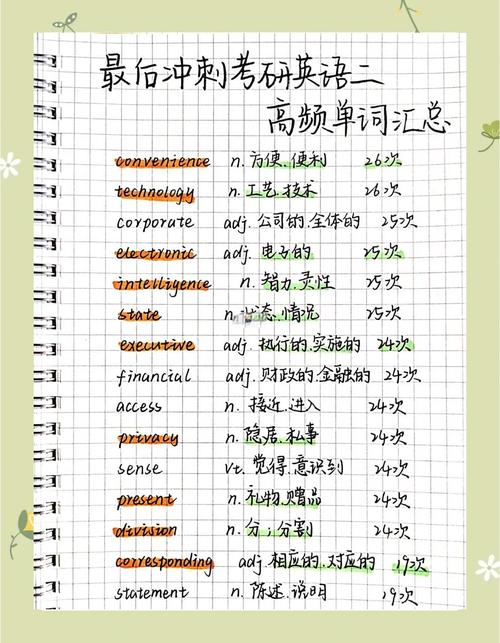 最后冲刺考研英语二
高频单词汇总
convenience n. 方便.便利 26次
technology n. 工艺.技术 26次
corporate adj. 公司的.全体的 25次
electronic adj. 电子的 25次
intelligence n. 智力.灵性 25次
state n. 状态.情况 25次
executive adj. 执行的.实施的 24次
financial adj. 财政的.金融的 24次
access n. 接近.进入 24次
privacy n. 隐居.私事 24次
sense vt. 觉得.意识到 24次
present n. 礼物.赠品 24次
division n. 分;分割 24次
corresponding adj. 相应的.对应的 19次
statement n. 陈述.说明 19次